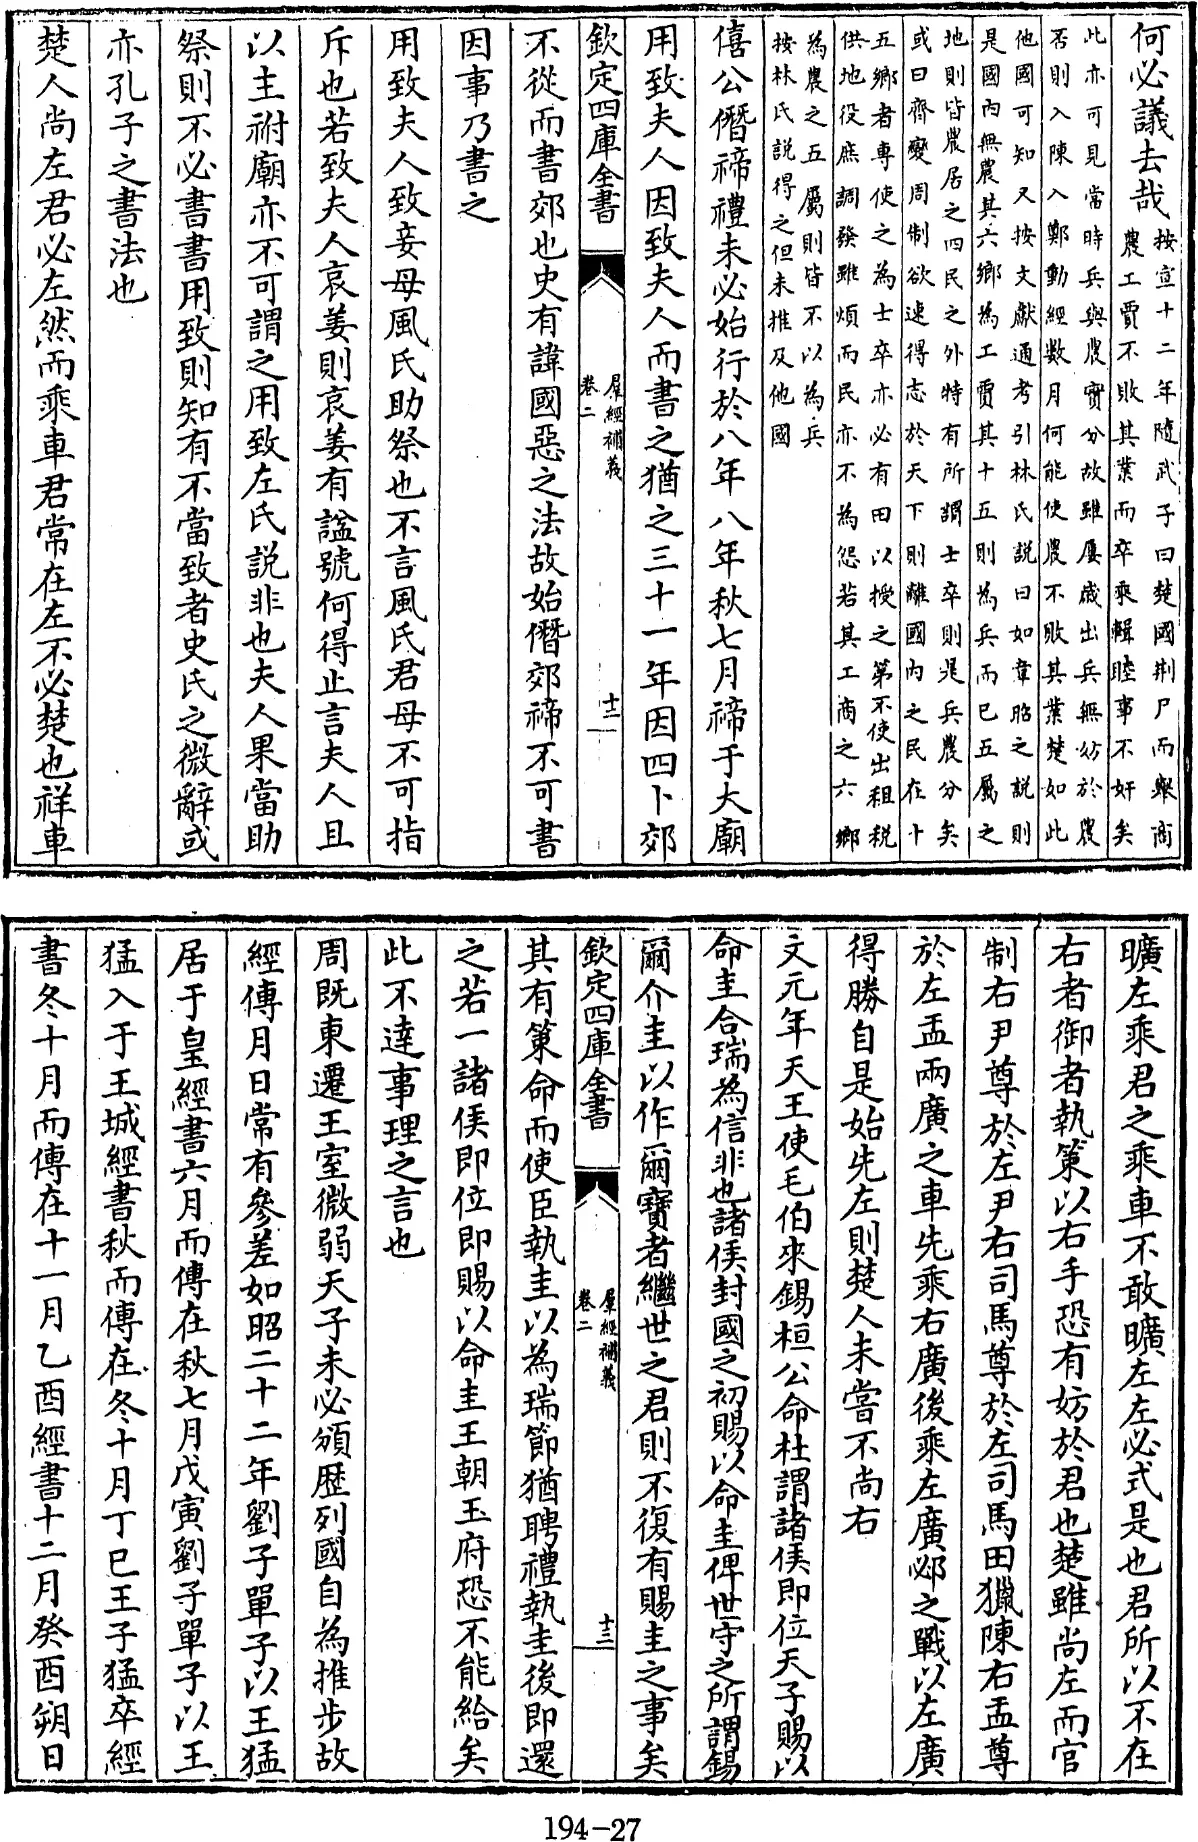 何必議去哉
按宣十二年隨武子曰楚國荆尸而舉商
農工賈不敗其業而卒乘輯睦事不奸矣
此亦可見當時兵與農實分故雖屢歲出兵無妨於農
否則入陳入鄭動經數月何能使農不敗其業楚如此
他國可知又按文獻通考引林氏說曰如韋昭之說則
是國内無農其六鄉為工賈其十五則為兵而已五屬之
地則皆農居之四民之外特有所謂士卒則是兵農分矣
或曰齊變周制欲速得志於天下則離國内之民在十
五鄉者專使之為士卒亦必有田以授之第不使出租稅
供地役庶調發雖煩而民亦不為怨若其工商之六鄉
為農之五屬則皆不以為兵
按林氏說得之但未推及他國
僖公僭禘禮未必始行於八年八年秋七月禘于大廟
用致夫人因致夫人而書之猶之三十一年因四卜郊
欽定四庫全書
羣經補義
卷二
十二
不從而書郊也史有諱國惡之法故始僭郊禘不可書
因事乃書之
用致夫人致妾母風氏助祭也不言風氏君母不可指
斥也若致夫人哀姜則哀姜有諡號何得止言夫人且
以主祔廟亦不可謂之用致左氏説非也夫人果當助
祭則不必書書用致則知有不當致者史氏之微辭或
亦孔子之書法也
楚人尚左君必左然而乘車君常在左不必楚也祥車
曠左乘君之乘車不敢曠左左必式是也君所以不在
右者御者執策以右手恐有妨於君也楚雖尚左而官
制右尹尊於左尹右司馬尊於左司馬田獵陳右盂尊
於左盂兩廣之車先乘右廣後乘左廣邲之戰以左廣
得勝自是始先左則楚人未嘗不尚右
文元年天王使毛伯來錫桓公命杜謂諸侯即位天子賜以
命圭合瑞為信非也諸侯封國之初賜以命圭俾世守之所謂錫
爾介圭以作爾寶者繼世之君則不復有賜圭之事矣
欽定四庫全書
羣經補義
卷二
十三
其有策命而使臣執圭以為瑞節猶聘禮執圭後即還
之若一諸侯即位即賜以命圭王朝玉府恐不能給矣
此不達事理之言也
周既東遷王室微弱天子未必頒歴列國自為推步故
經傳月日常有參差如昭二十二年劉子單子以王猛
居于皇經書六月而傳在秋七月戊寅劉子單子以王
猛入于王城經書秋而傳在冬十月丁巳王子猛卒經
書冬十月而傳在十一月乙酉經書十二月癸酉朔日
194-27